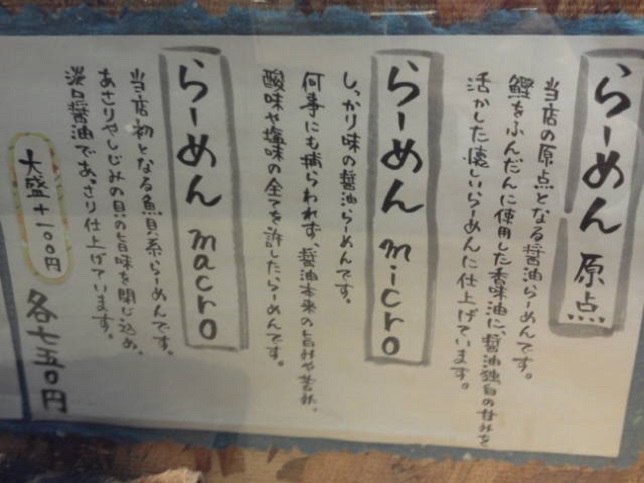 らーめん 原点
当店の原点となる醤油らーめんです。
鰹をふんだんに使用した香味油に、醤油独自の甘みを
活かした懐しいらーめんに仕上げています。
らーめん micro
しっかり味の醤油らーめんです。
何事にも捕らわれず、醤油本来の旨みや苦み、
酸味や塩味の全てを許したらーめんです。
らーめん macro
当店初となる魚貝系らーめんです。
あさりやしじみの貝の旨味を閉じ込め、
淡口醤油であさり仕上げています。
大盛+一〇〇円
各七五〇円